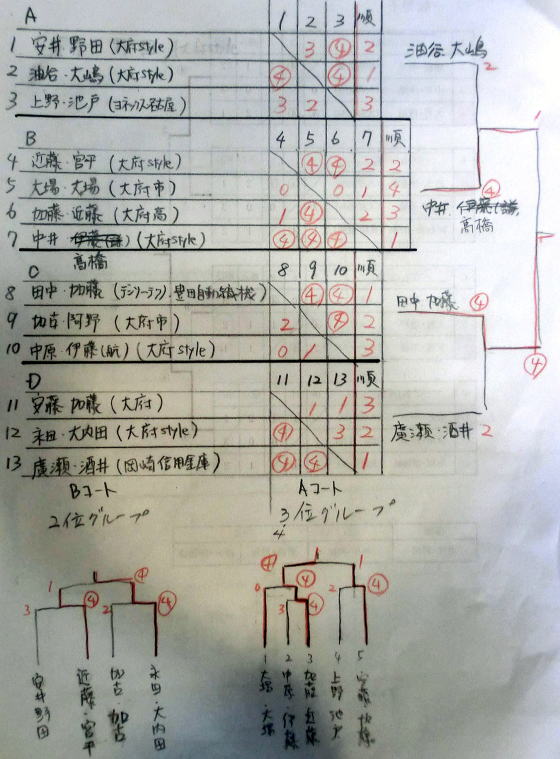 A 1 2 3 順
1 安井・野田 (大府style) 3 ④ 2
2 油谷・大嶋 (大府style) ④ ④ 1
3 上野・池戸 (ヨネックス名古屋) 3 2 3
B 4 5 6 7 順
4 近藤・宮平 (大府style) ④ ④ 2 2
5 大場・大場 (大府市) 0 0 1 4
6 加藤・近藤 (大府高) 1 ④ 2 3
7 中井 (大府style) ④ ④ ④ 1
高橋
C 8 9 10 順
8 田中・加藤 (豊田自動織機) ④ ④ 1
9 加古・阿野 (大府市) 2 ④ 2
10 中原・伊藤(航) (大府style) 0 1 3
D 11 12 13 順
11 安藤・加藤 (大府) 1 1 3
12 永田・大内田 (大府style) ④ 3 2
13 廣瀬・酒井 (岡崎信用金庫) ④ ④ 1
油谷 大嶋 2
1
④
中井
高橋
田中 加藤 ④
④
廣瀬・酒井 2
Bコート
2位グループ
1 ④
3 ④ 2 ④
安井野田
近藤・宮平
加古・加古
永田・大内田
Aコート
3位グループ
4
④ 1
0 ④ 2 ④
3 ④
1 大場・大場
2 中原・伊藤
3 加藤近藤
4 上野池戸
5 安藤・加藤